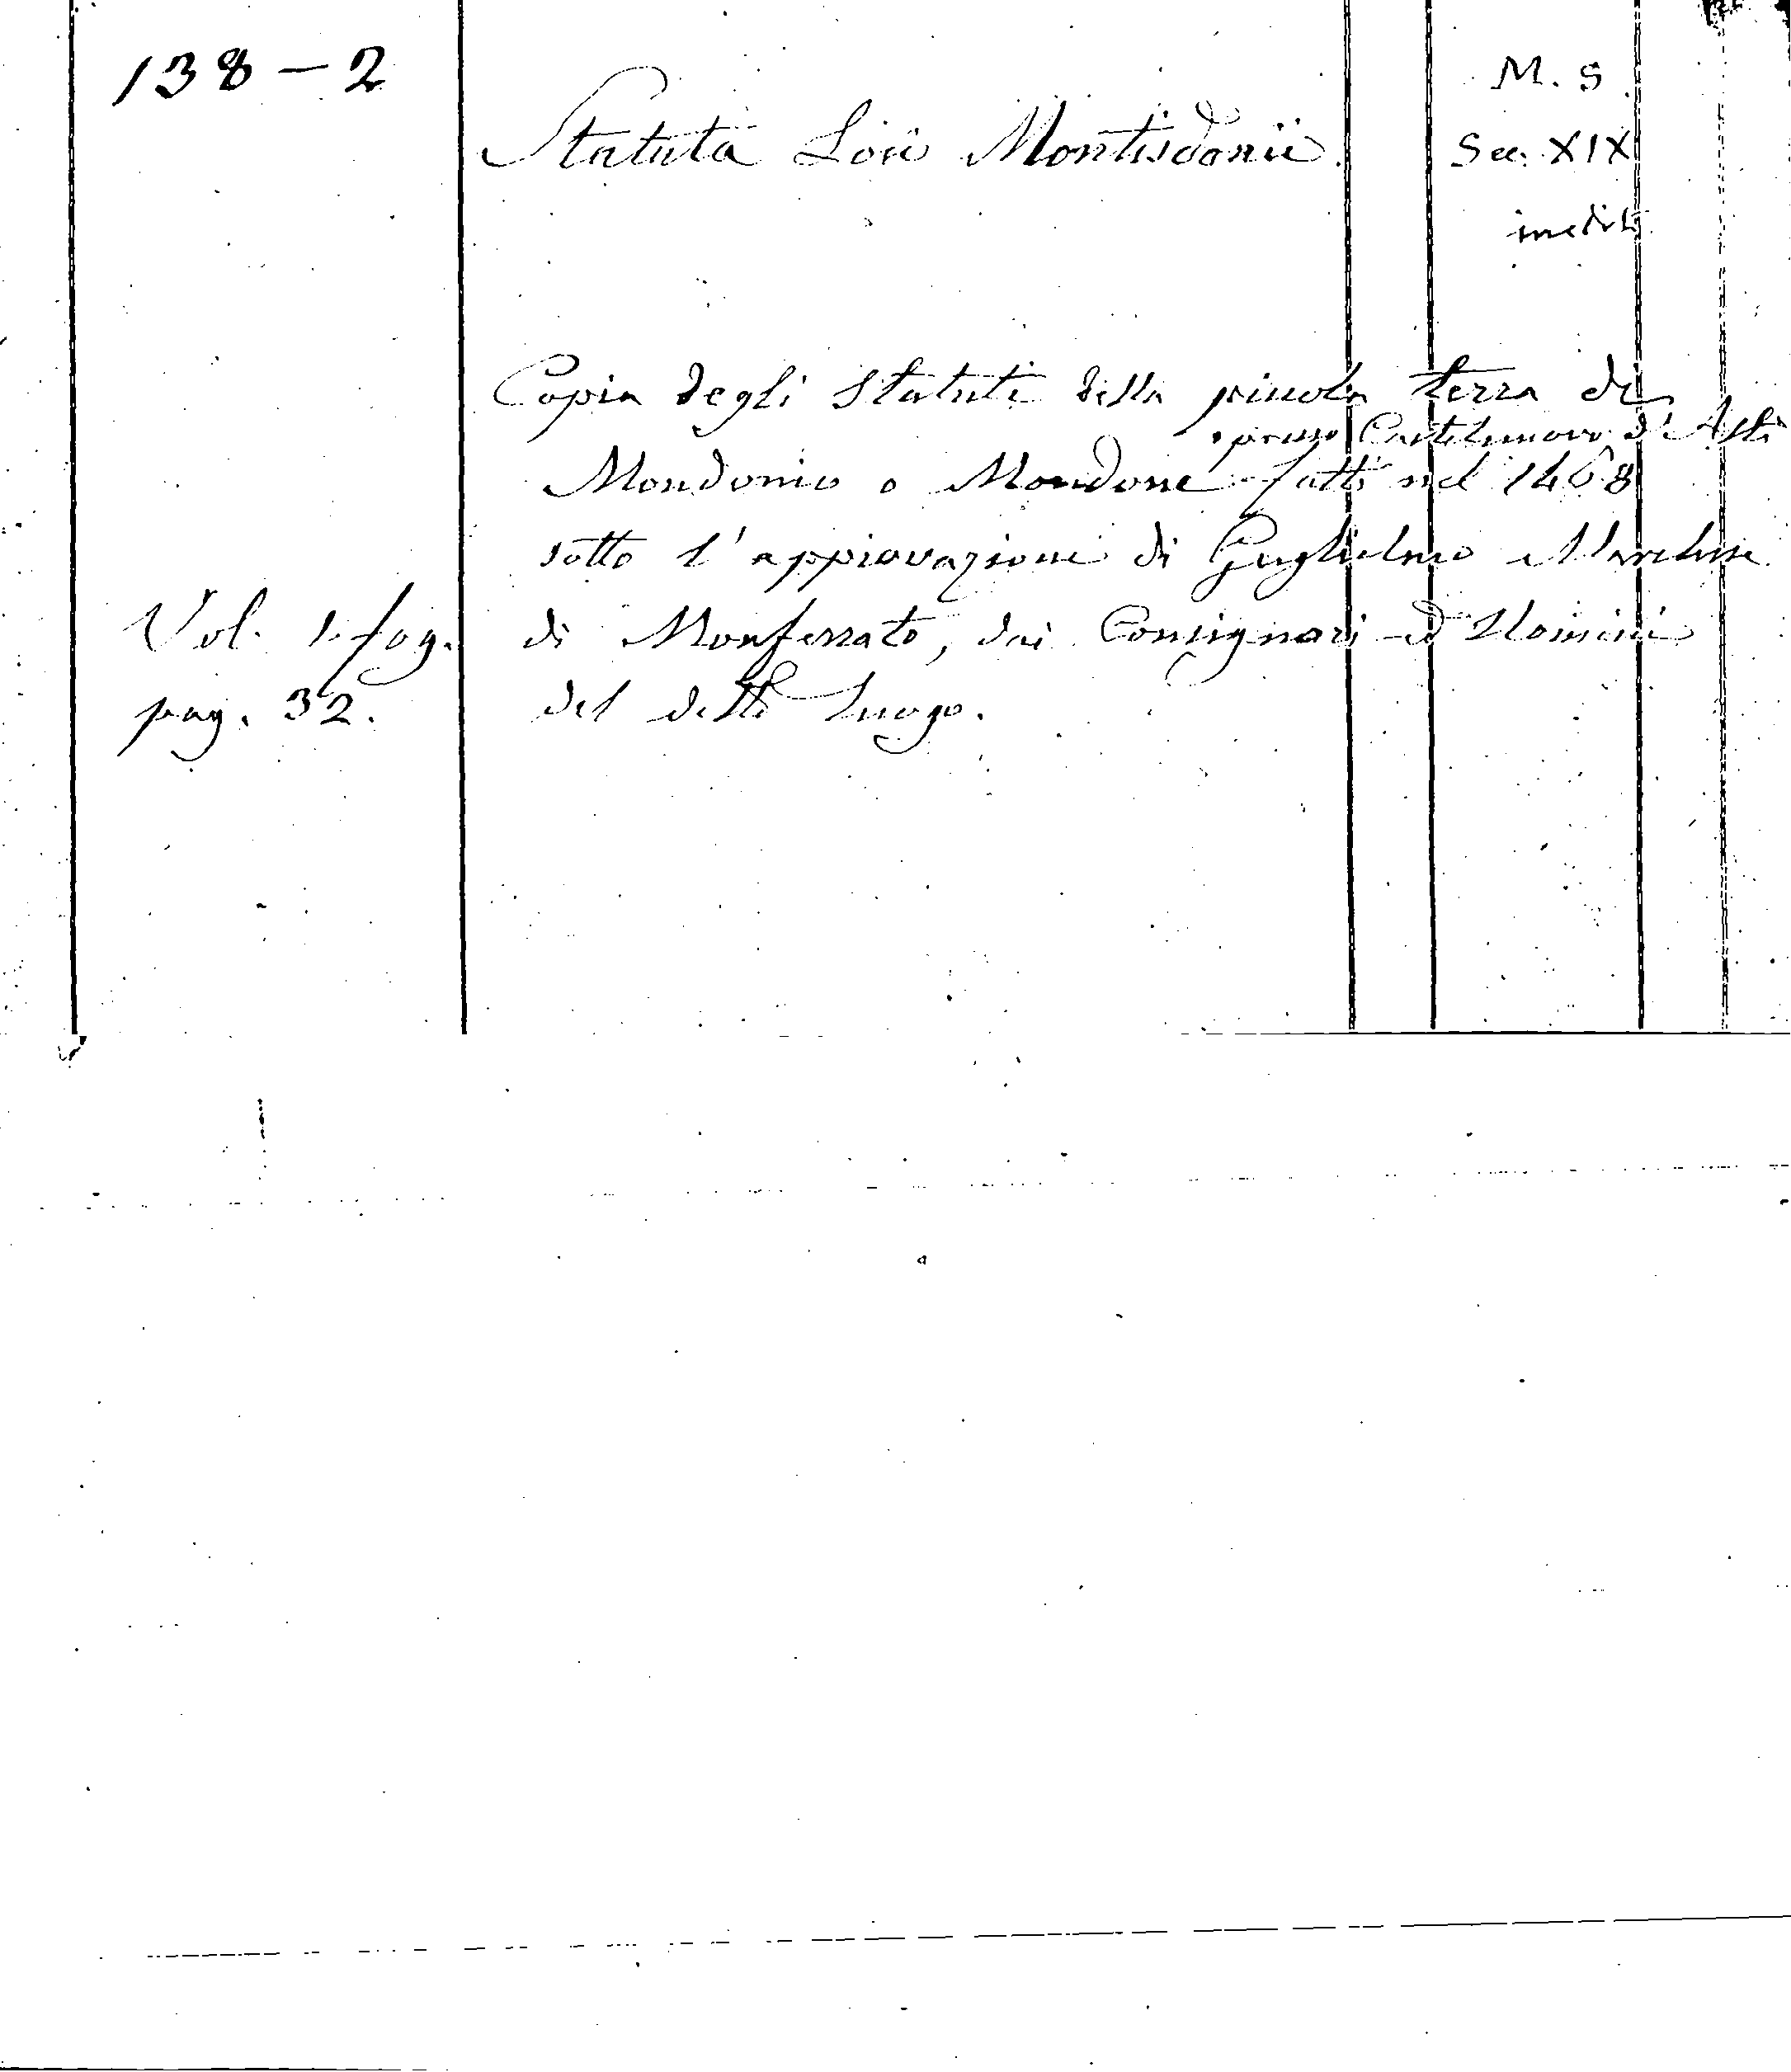 138-2
M. S.
Statuta Loci Montisdonii.
Sec. XIX
inediti
Copia degli Statuti della piccola terra di
presso Castelnuovo d'Asti
Mondonio o Mondone fatti nel 1468
sotto l'approvazione di Guglielmo Marchese
Vol. in fog. di Monferrato, dai Consignori ed Uomini
pag. 32. del detto luogo.